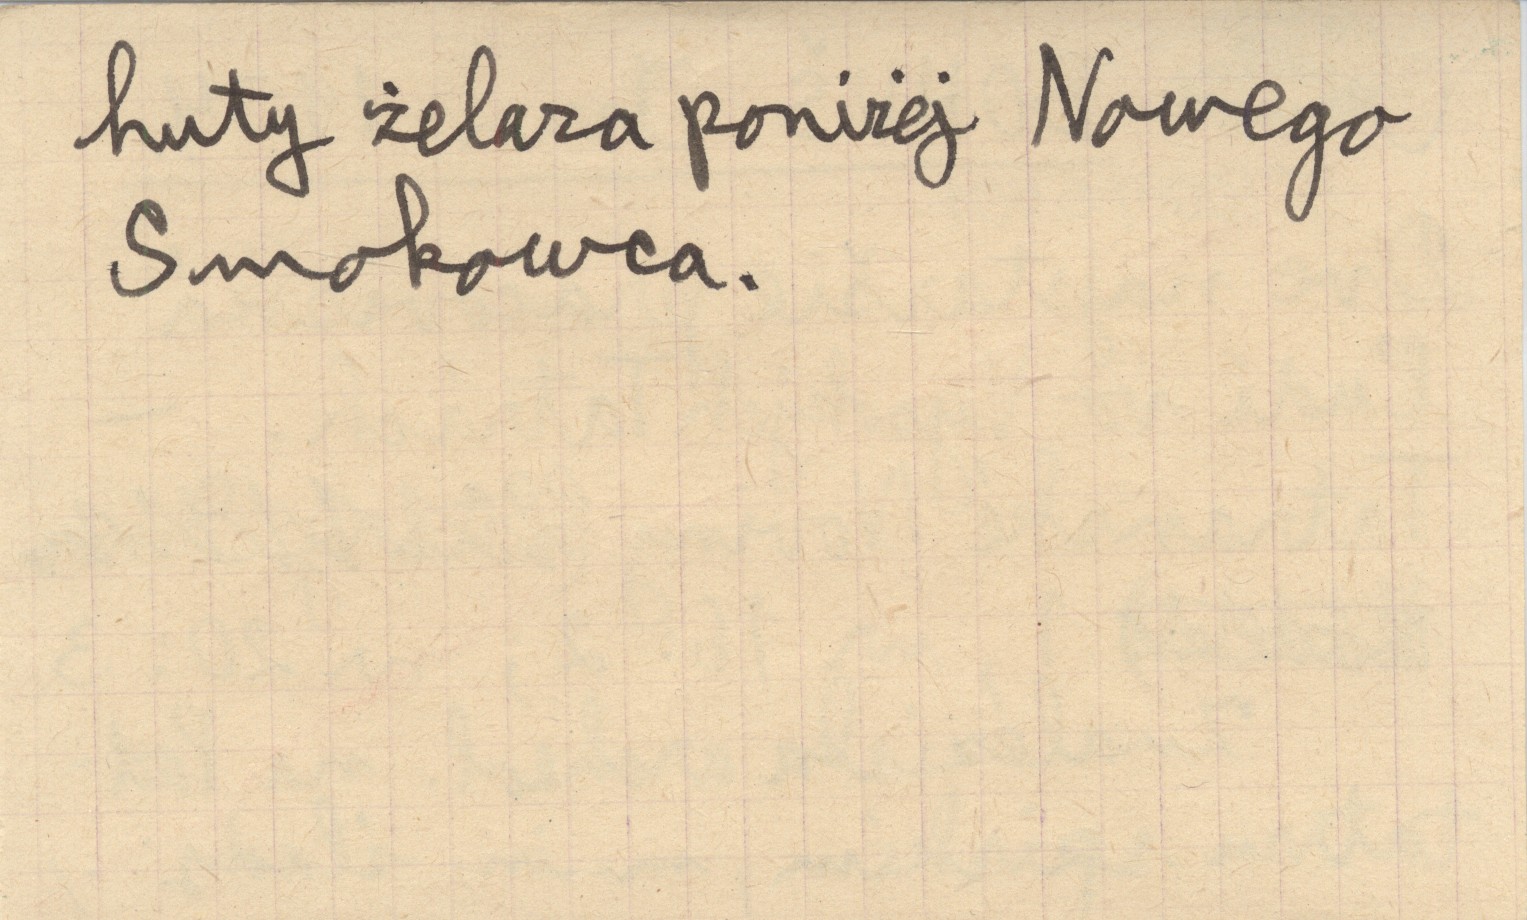 huty żelaza poniżej Nowego
Smokowca.